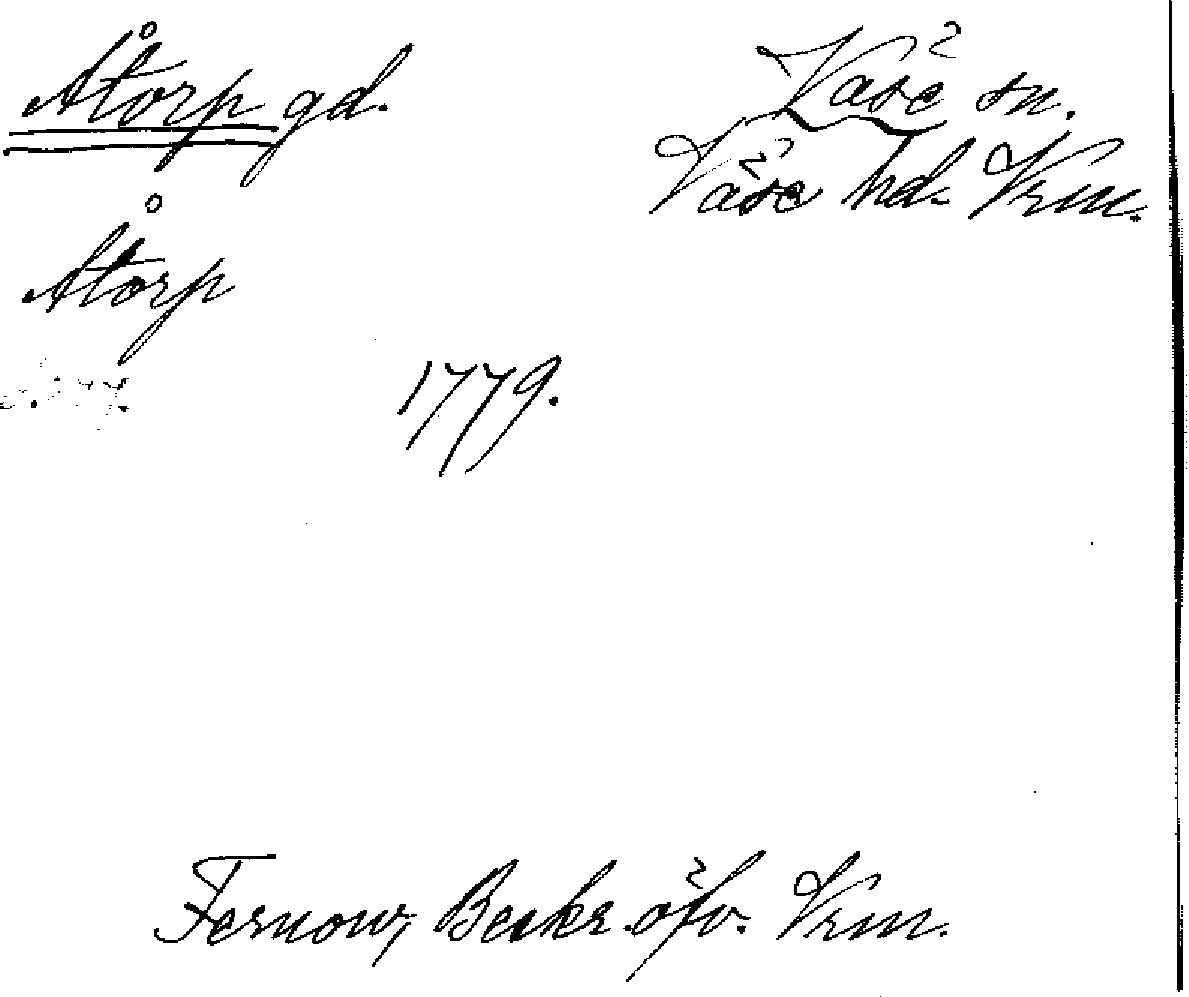 Åtorp gd.
Väse sn.
Väse hd. Vrm.
Åtorp
1779.
Fernow, Beskr. öfv. Vrm.